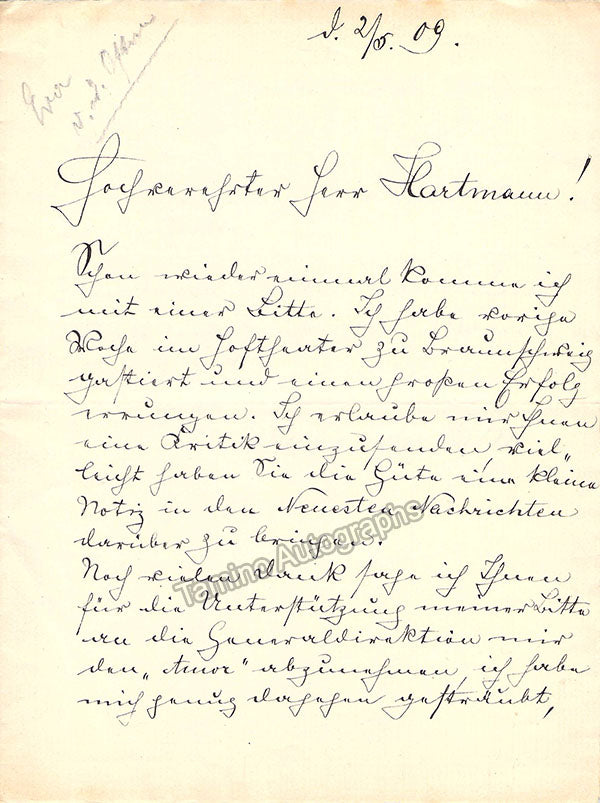 d. 2/5. 09.
Eva
v. d. Osten
Hochverehrter Herr Hartmann!
Schon wieder einmal komme ich
mit einer Bitte. Ich habe vorige
Woche im Hoftheater zu Braunschweig
gastiert und einen großen Erfolg
errungen. Ich erlaube mir Ihnen
eine Kritik einzusenden, viel„
leicht haben Sie die Güte eine kleine
Notiz in den Neuesten Nachrichten
darüber zu bringen.
Tamino Autographs
Noch vielen Dank sage ich Ihnen
für die Unterstützung meiner Bitte
an die Generaldirektion mir
den „Amor" abzunehmen, ich habe
mich genug dagegen gesträubt,